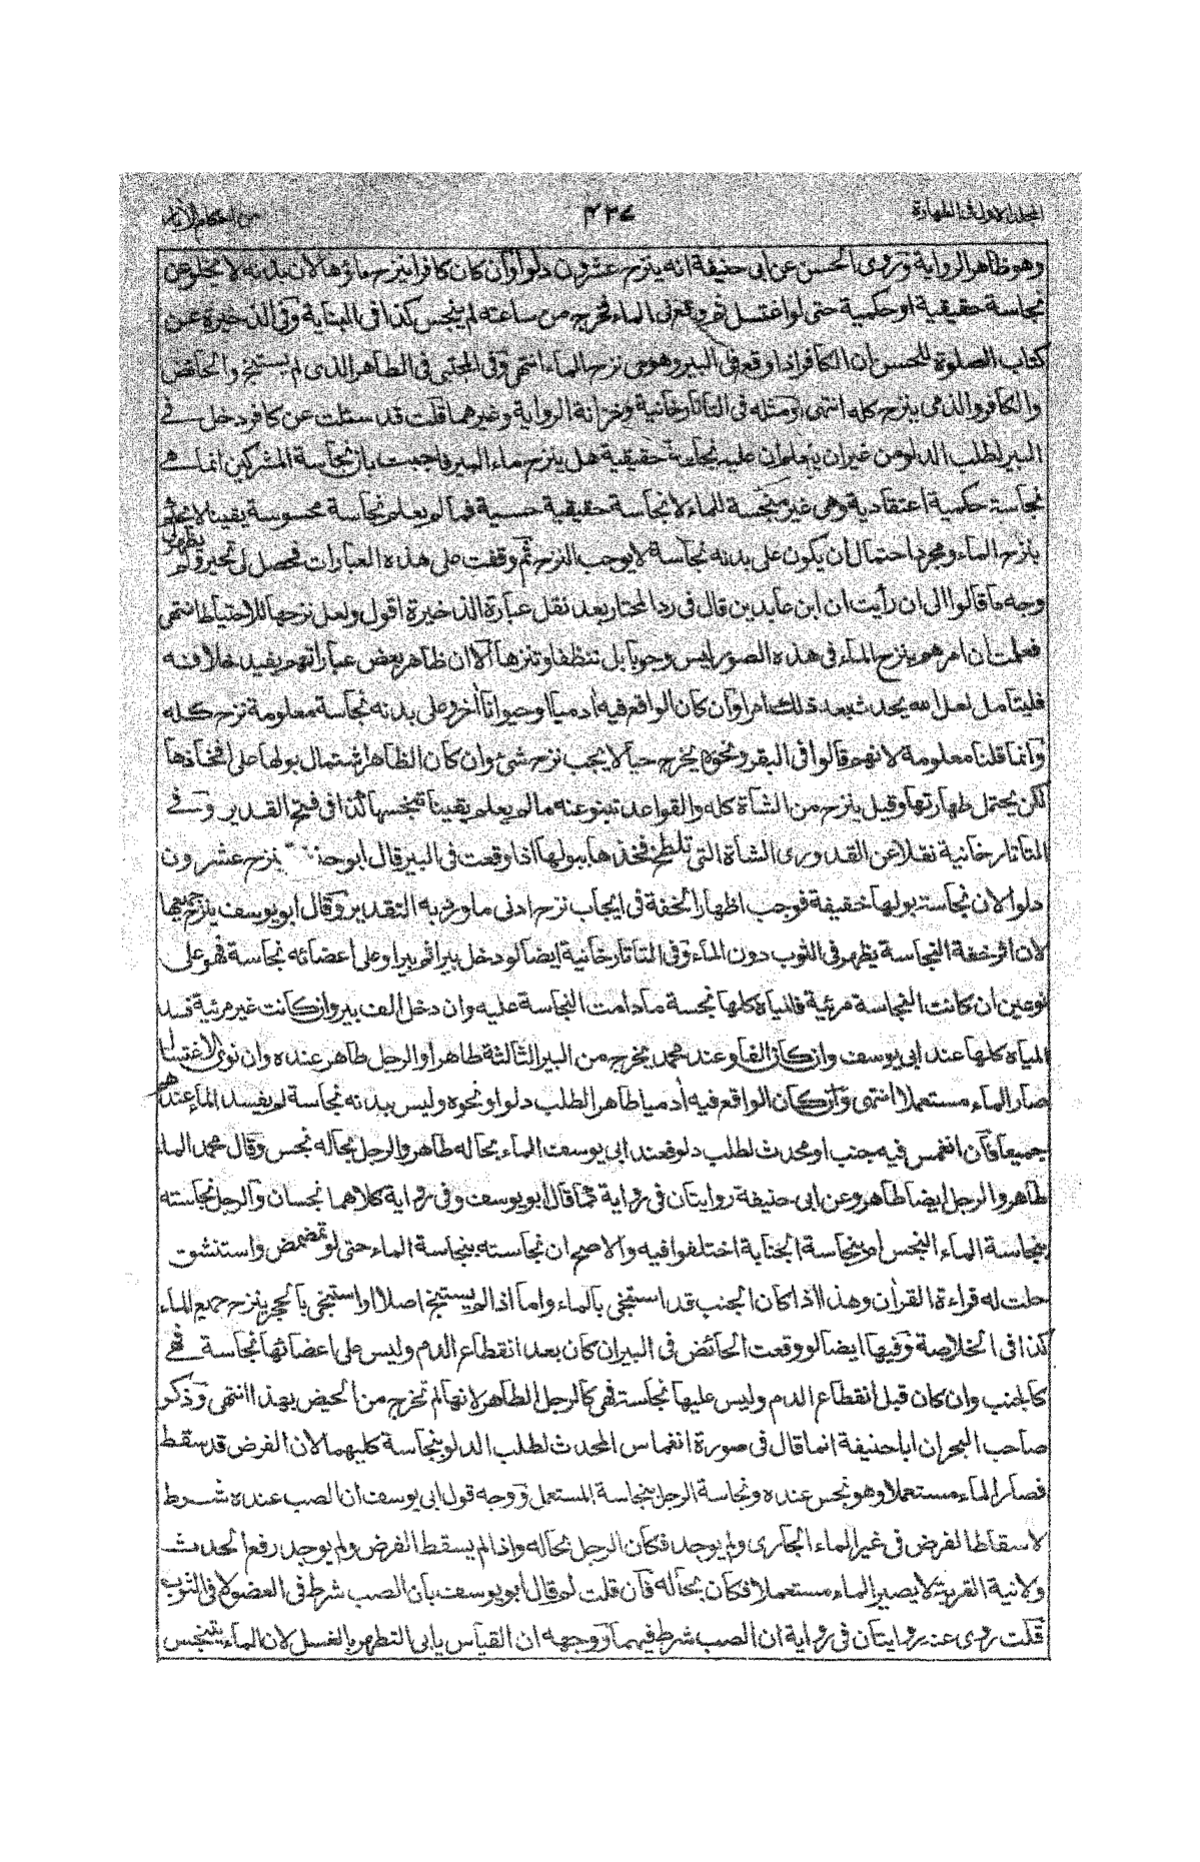 المجلد الاول فى الطهارة ٤٣٧ من احكام الآبار
وهو ظاهر الرواية وروى الحسن عن ابى حنيفة انه ينزح عشرون دلوا وان كان كافرا ينزح ماؤها لان بدنه لا يخلو عن
نجاسة حقيقية او حكمية حتى لو اغتسل ثم وقع فى الماء فخرج من ساعته لم ينجس كذا فى البناية وفى الذخيرة عن
كتاب الصلوة للحسن ان الكافر اذا وقع فى البير وهو حى نزح الماء انتهى وفى المجتبى فى الطاهر الذى لم يستنج والحائض
والكافر والذمى ينزح كله انتهى ومثله فى التاتارخانية وخزانة الرواية وغيرهما قلت قد سئلت عن كافر دخل فى
البير لطلب الدلو من غير ان يعلم ان عليه نجاسة حقيقية هل ينزح ماء البير فاجبت بان نجاسة المشركين انما هى
نجاسة حكمية اعتقادية وهى غير منجسة للماء لا نجاسة حقيقية حسية فما لم يعلم نجاسة محسوسة يقينا لا يحكم
بنزح الماء ومجرد احتمال ان يكون على بدنه نجاسة لا يوجب النزح ثم وقفت على هذه العبارات فحصل لى تحير ولم يظهر لى
وجه ما قالوا الى ان رأيت ان ابن عابدين قال فى رد المحتار بعد نقل عبارة الذخيرة اقول ولعل نزحها للاحتياط انتهى
فعلمت ان امرهم بنزح الماء فى هذه الصور ليس وجوبا بل تنظفا وتنزها الا ان ظاهر بعض عباراتهم يفيد خلافه
فليتأمل لعل الله يحدث بعد ذلك امرا وان كان الواقع فيه آدميا او حيوانا آخر وعلى بدنه نجاسة معلومة نزح كله
وانما قلنا معلومة لانهم قالوا فى البقر ونحوه يخرج حيا لا يجب نزح شئ وان كان الظاهر اشتمال بولها على افخاذها
لكن يحتمل طهارتها وقيل ينزح من الشاة كله والقواعد تنبو عنه ما لم يعلم يقينا تنجسها كذا فى فتح القدير وفى
التاتارخانية نقلا عن القدورى الشاة التى تلطخ فخذها ببولها اذا وقعت فى البير قال ابو ينزح عشرون
دلوا لان نجاسة بولها خفيفة فوجب اظهار الخفة فى ايجاب نزح ادنى ما ورد به التقدير وقال ابو يوسف ينزح جميعها
لان اثر خفة النجاسة يظهر فى الثوب دون الماء وفى التاتارخانية ايضا لو دخل بيرا ثم بيرا وعلى اعضائه نجاسة فهو على
نوعين ان كانت النجاسة مرئية فالمياه كلها نجسة ما دامت النجاسة عليه وان دخل الف بير وان كانت غير مرئية فسد
المياه كلها عند ابى يوسف وان كان الفا وعند محمد يخرج من البير الثالثة طاهرا والرجل طاهر عنده وان نوى الاغتسال
صار الماء مستعملا انتهى وان كان الواقع فيه آدميا طاهرا لطلب دلو او نحوه وليس ببدنه نجاسة لم يفسد الماء عندهم
جميعا فان انغمس فيه جنب او محدث لطلب دلو فعند ابى يوسف الماء بحاله طاهر والرجل بحاله نجس وقال محمد الماء
طاهر والرجل ايضا طاهر وعن ابى حنيفة روايتان فى رواية كما قال ابو يوسف وفى رواية كلاهما نجسان والرجل نجاسته
بنجاسة الماء النجس او بنجاسة الجنابة اختلفوا فيه والاصح ان نجاسته بنجاسة الماء حتى لو تمضمض واستنشق
حلت له قراءة القرآن وهذا اذا كان الجنب قد استنجى بالماء واما اذا لم يستنج اصلا او استنجى بالحجر ينزح جميع الماء
كذا فى الخلاصة وفيها ايضا لو وقعت الحائض فى البير ان كان بعد انقطاع الدم وليس على اعضائها نجاسة فهى
كالجنب وان كان قبل انقطاع الدم وليس عليها نجاسة فهى كالرجل الطاهر لانها لم تخرج من الحيض بهذا انتهى وذكر
صاحب البحر ان ابا حنيفة انما قال فى صورة انغماس المحدث لطلب الدلو بنجاسة كليهما لان الفرض قد سقط
فصار الماء مستعملا وهو نجس عنده ونجاسة الرجل بنجاسة المستعمل ووجه قول ابى يوسف ان الصب عنده شرط
لاسقاط الفرض فى غير الماء الجارى ولم يوجد فكان الرجل بحاله واذا لم يسقط الفرض ولم يوجد رفع الحدث
ولا نية القربة لا يصير الماء مستعملا فكان بحاله فان قلت لم قال ابو يوسف بان الصب شرط فى العضو لا فى الثوب
قلت روى عنه روايتان فى رواية ان الصب شرط فيهما ووجهه ان القياس يابى التطهر بالغسل لان الماء يتنجس